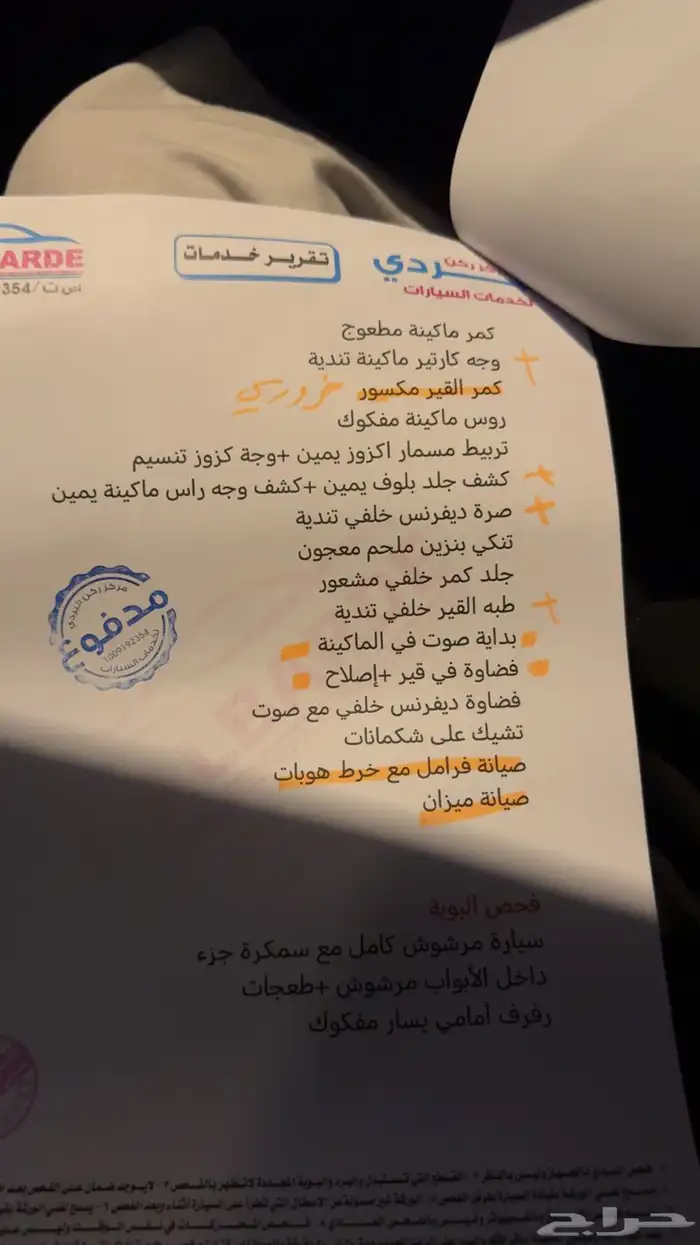 ARDE
354/س ت
تقرير خدمات
ركن
ـردي
لخدمات السيارات
كمر ماكينة مطعوج
وجه كارتير ماكينة تندية
كمر القير مكسور ضروري
روس ماكينة مفكوك
تربيط مسمار اكزوز يمين +وجة كزوز تنسيم
كشف جلد بلوف يمين +كشف وجه راس ماكينة يمين
صرة ديفرنس خلفي تندية
تنكي بنزين ملحم معجون
جلد كمر خلفي مشعور
طبه القير خلفي تندية
بداية صوت في الماكينة
فضاوة في قير +إصلاح
فضاوة ديفرنس خلفي مع صوت
تشيك على شكمانات
صيانة فرامل مع خرط هوبات
صيانة ميزان
مركز ركن كبردي
مدفوع
1009192354
لخدمات السيارات
فحص البوية
سيارة مرشوش كامل مع سمكرة جزء
داخل الأبواب مرشوش +طعجات
رفرف أمامي يسار مفكوك
حراج